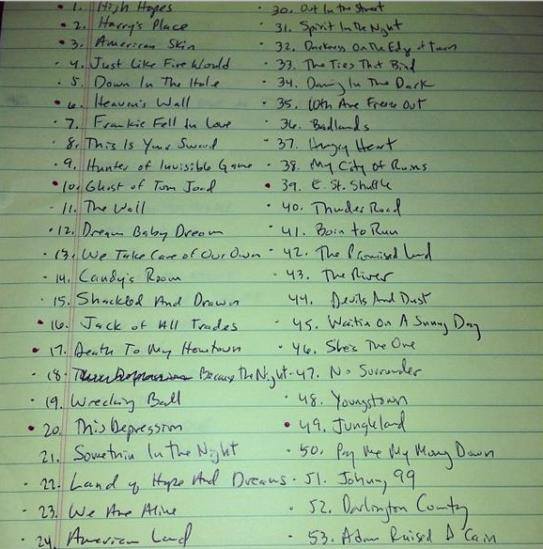 1. High Hopes
2. Harry's Place
3. American Skin
4. Just Like Fire Would
5. Down In The Hole
6. Heaven's Wall
7. Frankie Fell In Love
8. This Is Your Sword
9. Hunter of Invisible Game
10. Ghost of Tom Joad
11. The Wall
12. Dream Baby Dream
13. We Take Care of Our Own
14. Candy's Room
15. Shackled And Drawn
16. Jack of All Trades
17. Death To My Hometown
18. Because The Night
19. Wrecking Ball
20. This Depression
21. Somethin In The Night
22. Land of Hope And Dreams
23. We Are Alive
24. American Land
30. Out In The Street
31. Spirit In The Night
32. Darkness On The Edge of Town
33. The Ties That Bind
34. Dancing In The Dark
35. 10th Ave Freeze Out
36. Badlands
37. Hungry Heart
38. My City of Ruins
39. E. St. Shuffle
40. Thunder Road
41. Born to Run
42. The Promised Land
43. The River
44. Devils And Dust
45. Waitin On A Sunny Day
46. She's The One
47. No Surrender
48. Youngstown
49. Jungleland
50. Pay Me My Money Down
51. Johnny 99
52. Darlington County
53. Adam Raised A Cain